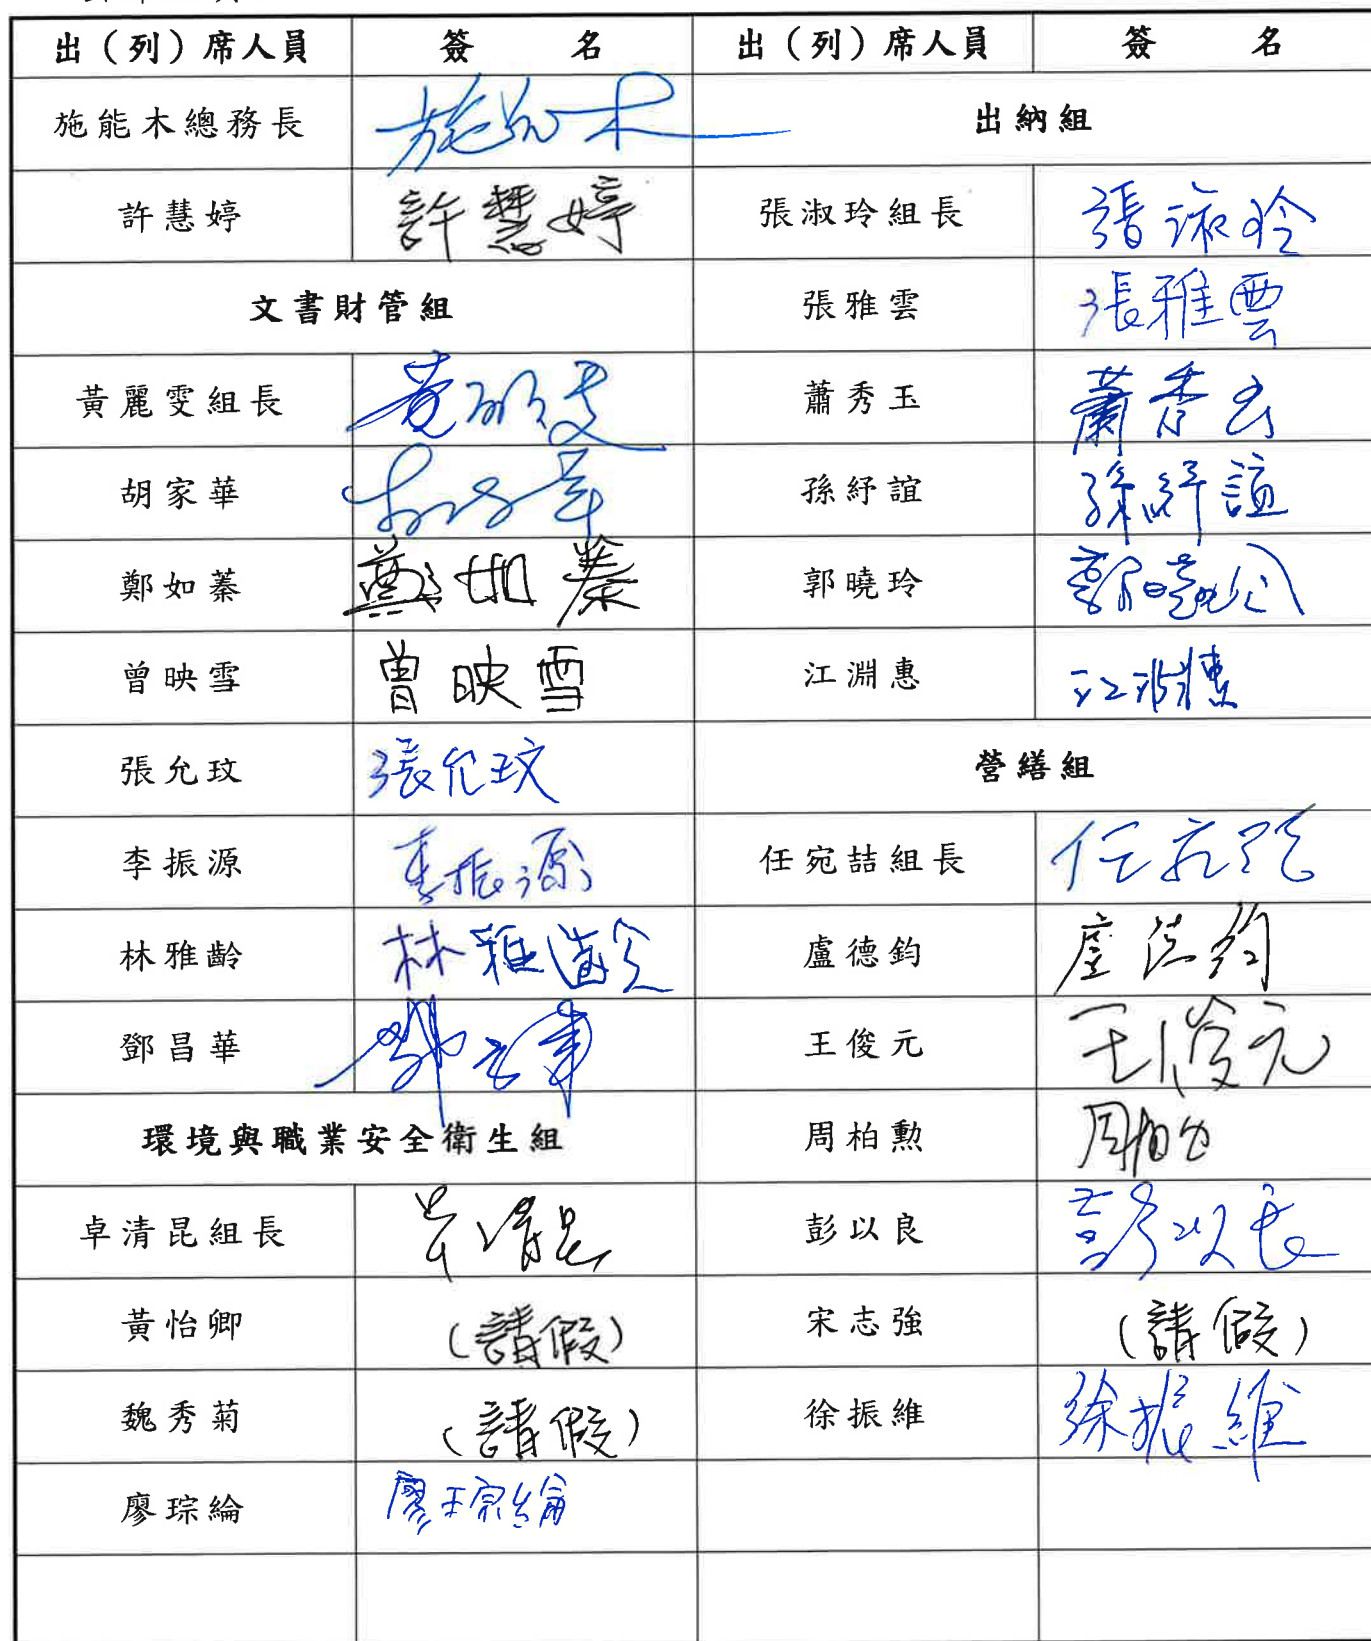 出（列）席人員 簽 名 出（列）席人員 簽 名
施能木總務長 施能木 出納組
許慧婷 許慧婷 張淑玲組長 張淑玲
文書財管組 張雅雲 張雅雲
黃麗雯組長 黃麗雯 蕭秀玉 蕭秀玉
胡家華 胡家華 孫紓誼 孫紓誼
鄭如蓁 鄭如蓁 郭曉玲 郭曉玲
曾映雪 曾映雪 江淵惠 江淵惠
張允玟 張允玟 營繕組
李振源 李振源 任宛喆組長 任宛喆
林雅齡 林雅齡 盧德鈞 盧德鈞
鄧昌華 鄧昌華 王俊元 王俊元
環境與職業安全衛生組 周柏勳 周柏勳
卓清昆組長 卓清昆 彭以良 彭以良
黃怡卿 (請假) 宋志強 (請假)
魏秀菊 (請假) 徐振維 徐振維
廖琮綸 廖琮綸